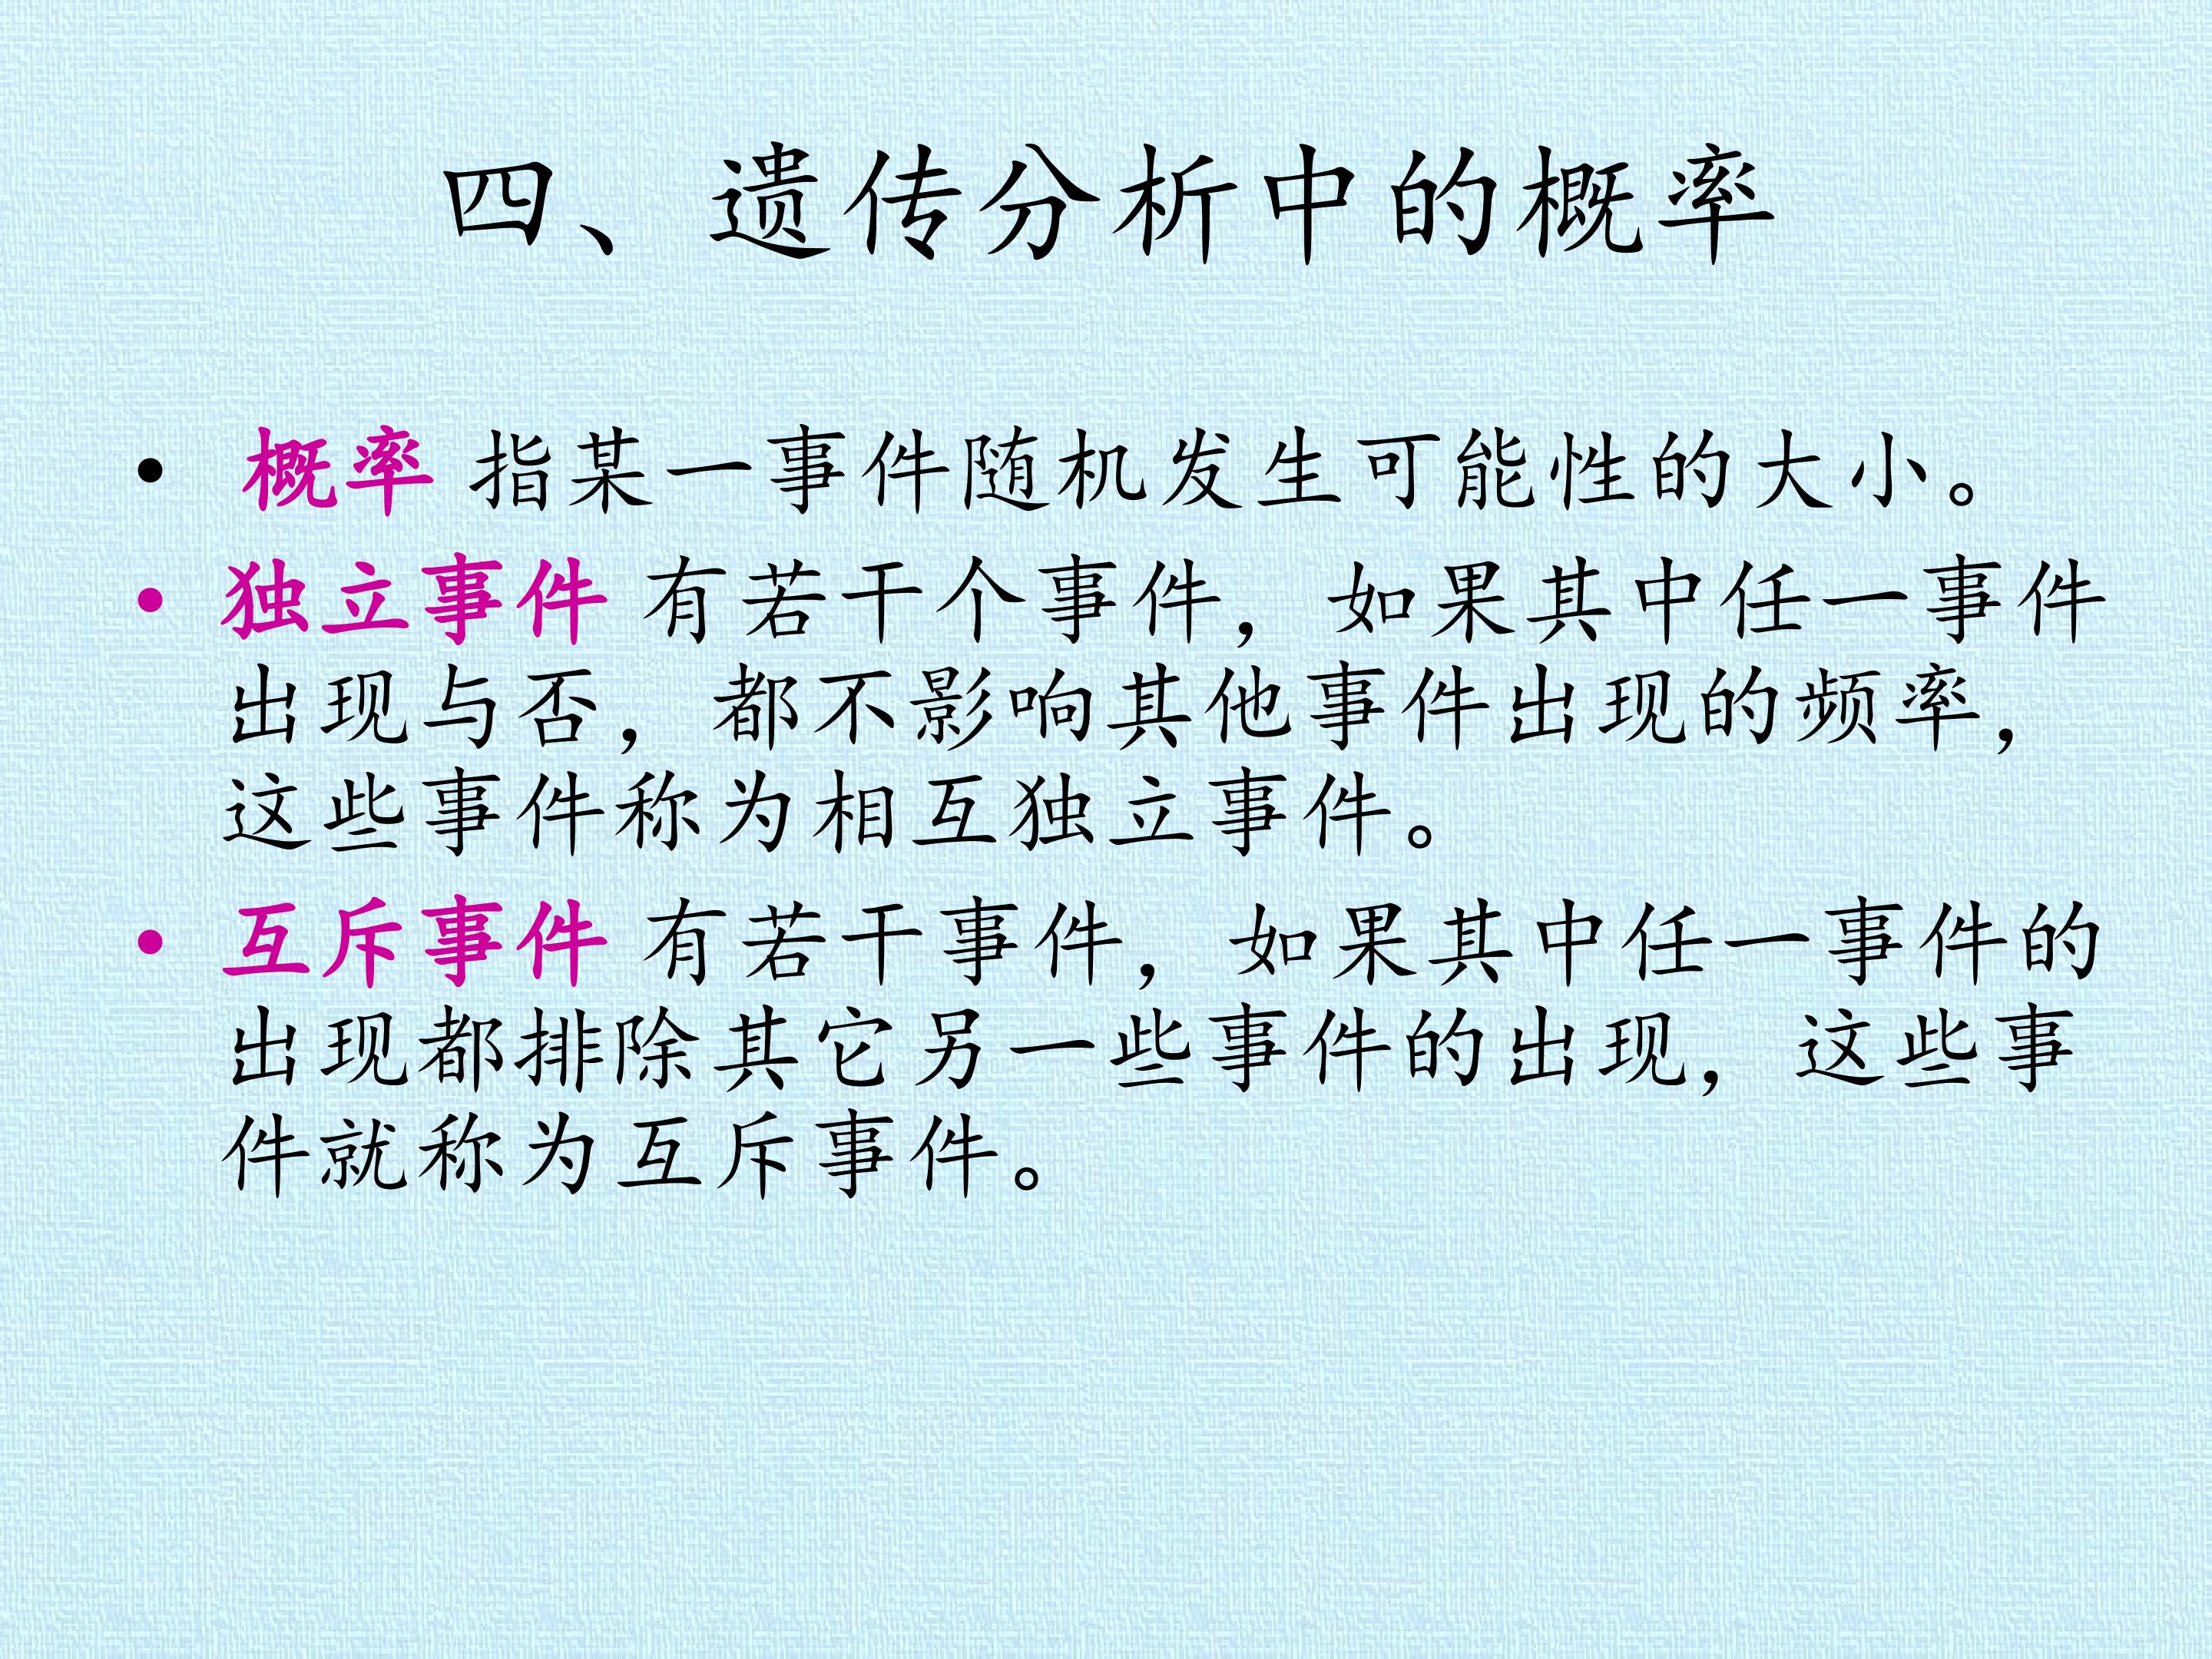 四、遗传分析中的概率
• 概率 指某一事件随机发生可能性的大小。
• 独立事件 有若干个事件，如果其中任一事件
出现与否，都不影响其他事件出现的频率，
这些事件称为相互独立事件。
• 互斥事件 有若干事件，如果其中任一事件的
出现都排除其它另一些事件的出现，这些事
件就称为互斥事件。